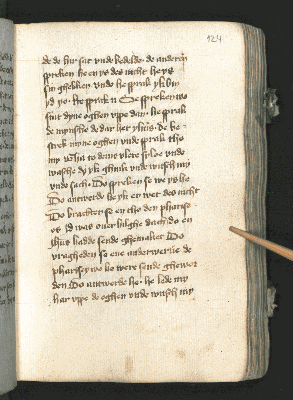 124
de de hir sat vnde bedelde de anderen
spreken he en ys des nicht he ys
em ghelik vnde he sprak yk byn
yd yo he sprak Se spreken wo
sint dyne oghen vppe dan he sprak
de mynsche de dar het yhus de be
strek myne oghen vnde sprak tho
my vnde
wasche dy yk ghink vnde wusch my
vnde sach Do spreken se we ys he
Do antwerde he yk en wet des nicht
Do brachten se en tho den pharise
os yd was ouer hilghe dach do en
ihus hadde sende ghemaket Do
vragheden se ene anderwerue de
pharisey wo he were sende ghewor
den Do antwerde he he lede my
har vppe de oghen vnde wusch my